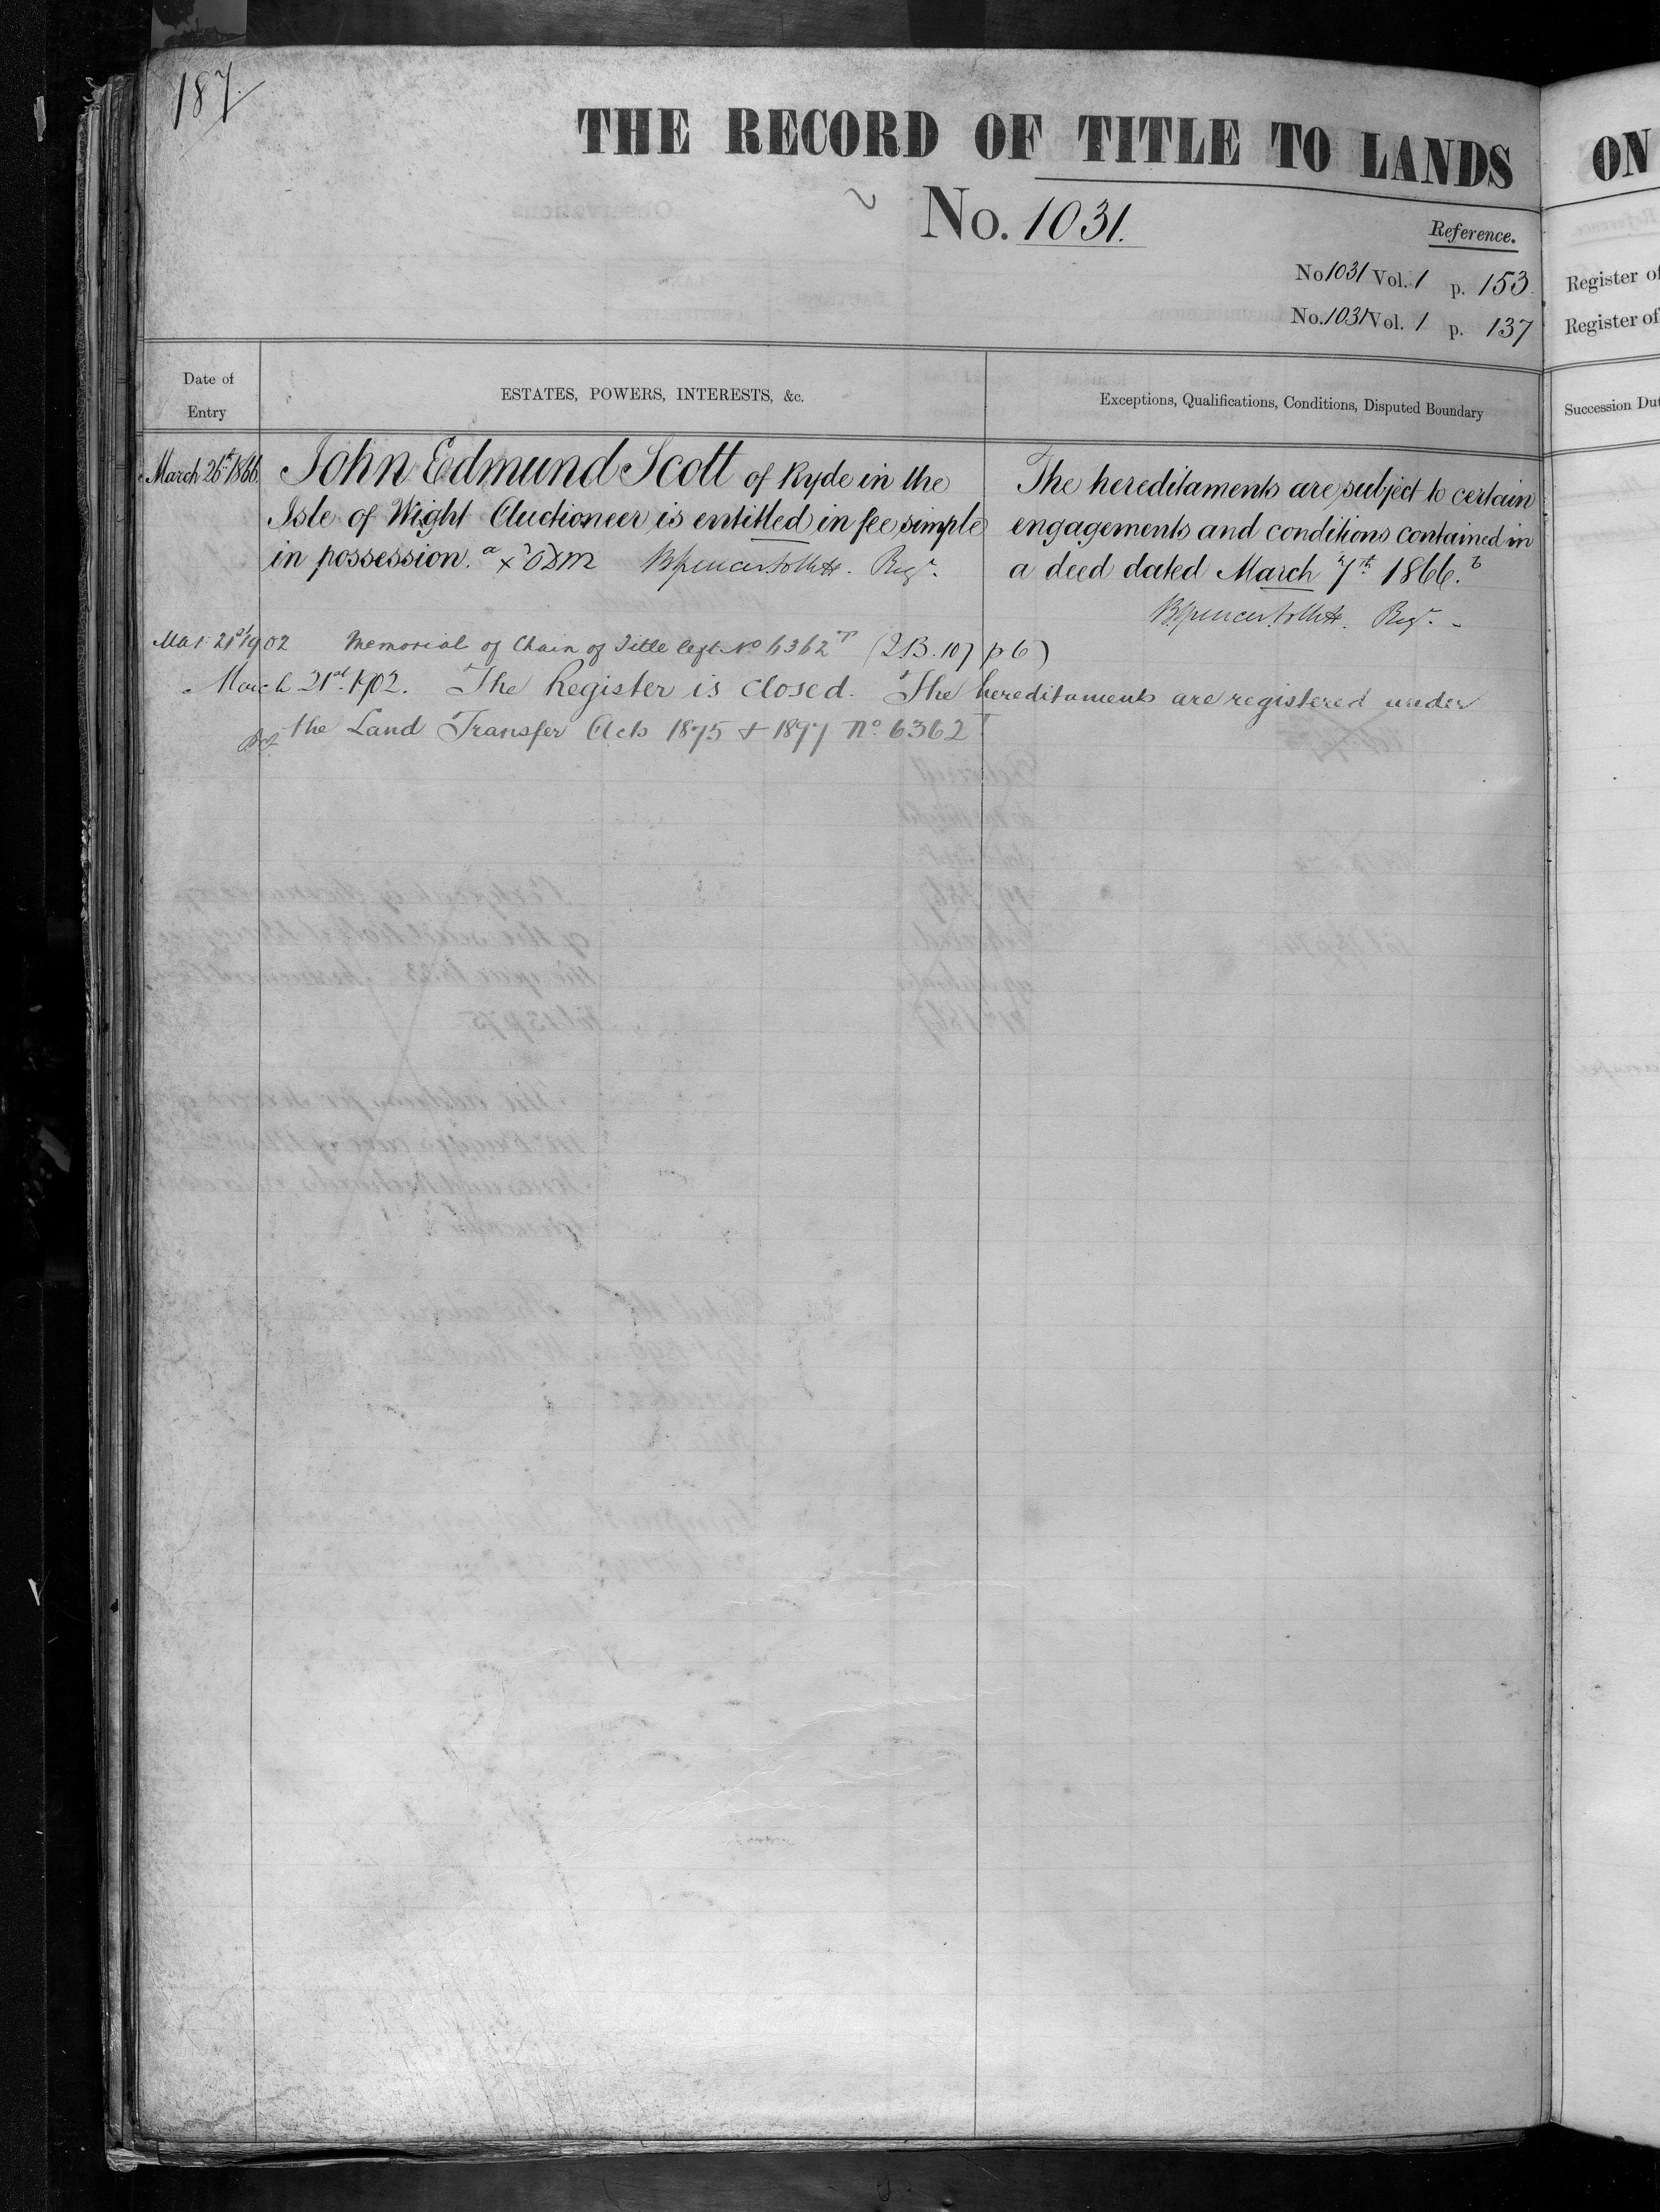 187.
THE RECORD OF TITLE TO LANDS
ON
No. 1031.
Reference.
No 1031 Vol. 1 p. 153
Register of
No. 1031 Vol. 1 p. 137
Register of
Date of
Entry
ESTATES, POWERS, INTERESTS, &c.
Exceptions, Qualifications, Conditions, Disputed Boundary
Succession Dut
March 26th 1866 John Edmund Scott of Ryde in the
Isle of Wight Auctioneer is entitled in fee simple
in possession. a Regr.
The hereditaments are subject to certain
engagements and conditions contained in
a deed dated March 7th 1866. b
Regr.
Mar 21st 1902 Memorial of Chain of Title No 6362 p 6)
March 21st 1902. The Register is closed. The hereditaments are registered under
the Land Transfer Acts 1875 & 1897 No 6362